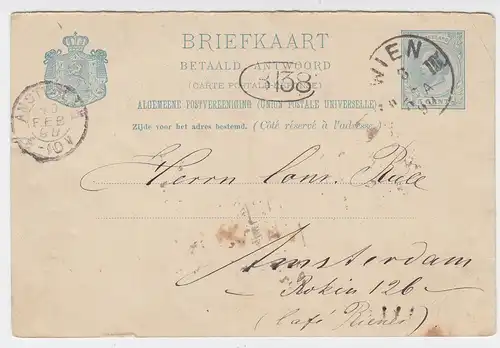 BRIEFKAART
BETAALD ANTWOORD
(CARTE POSTALE RÉPONSE)
ALGEMEENE POSTVEREENIGING (UNION POSTALE UNIVERSELLE)
Zijde voor het adres bestemd. (Côté réservé à l'adresse.)
WIEN
138
AMSTERDAM
FEB
Herrn
Amsterdam
Rokin 126
(Café